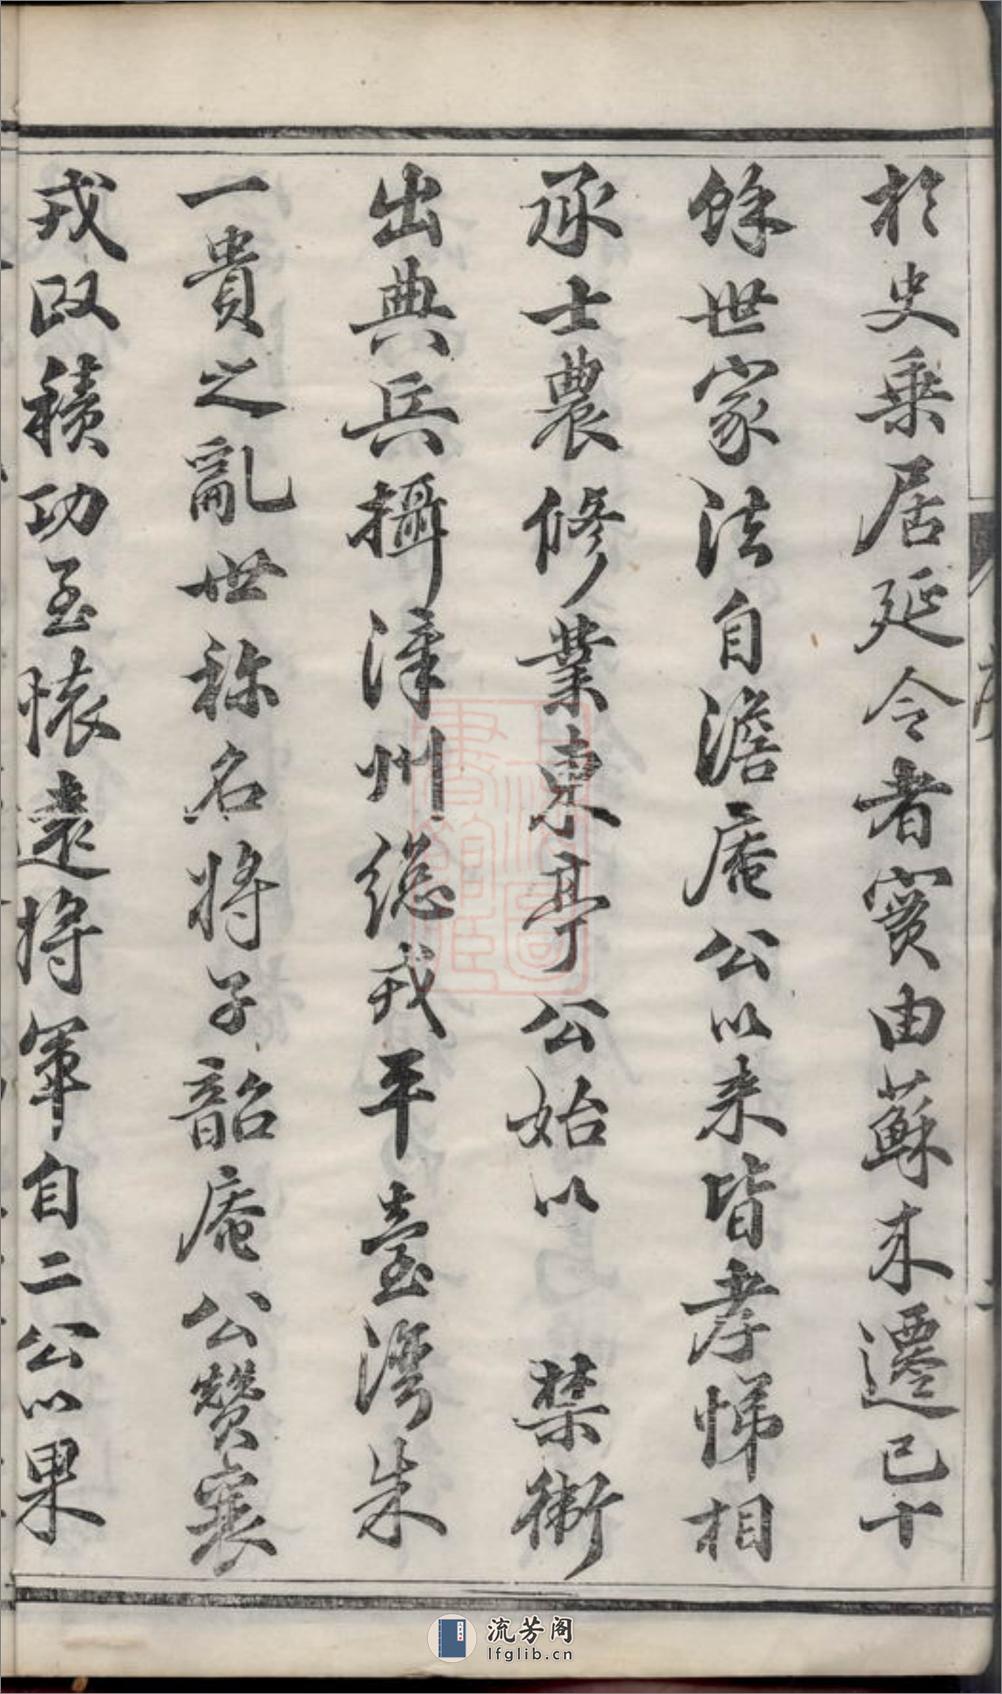 於史乘居延令者實由蘇來遷已十
餘世家法自澹庵公以来皆孝悌相
承士農修業東亭公始以 禁衛
出典兵攝漳州總戎平臺灣朱
一貴之亂世称名将子韶庵公贊襄
戎政積功至懷遠将軍自二公以果
流芳阁
lfglib.cn